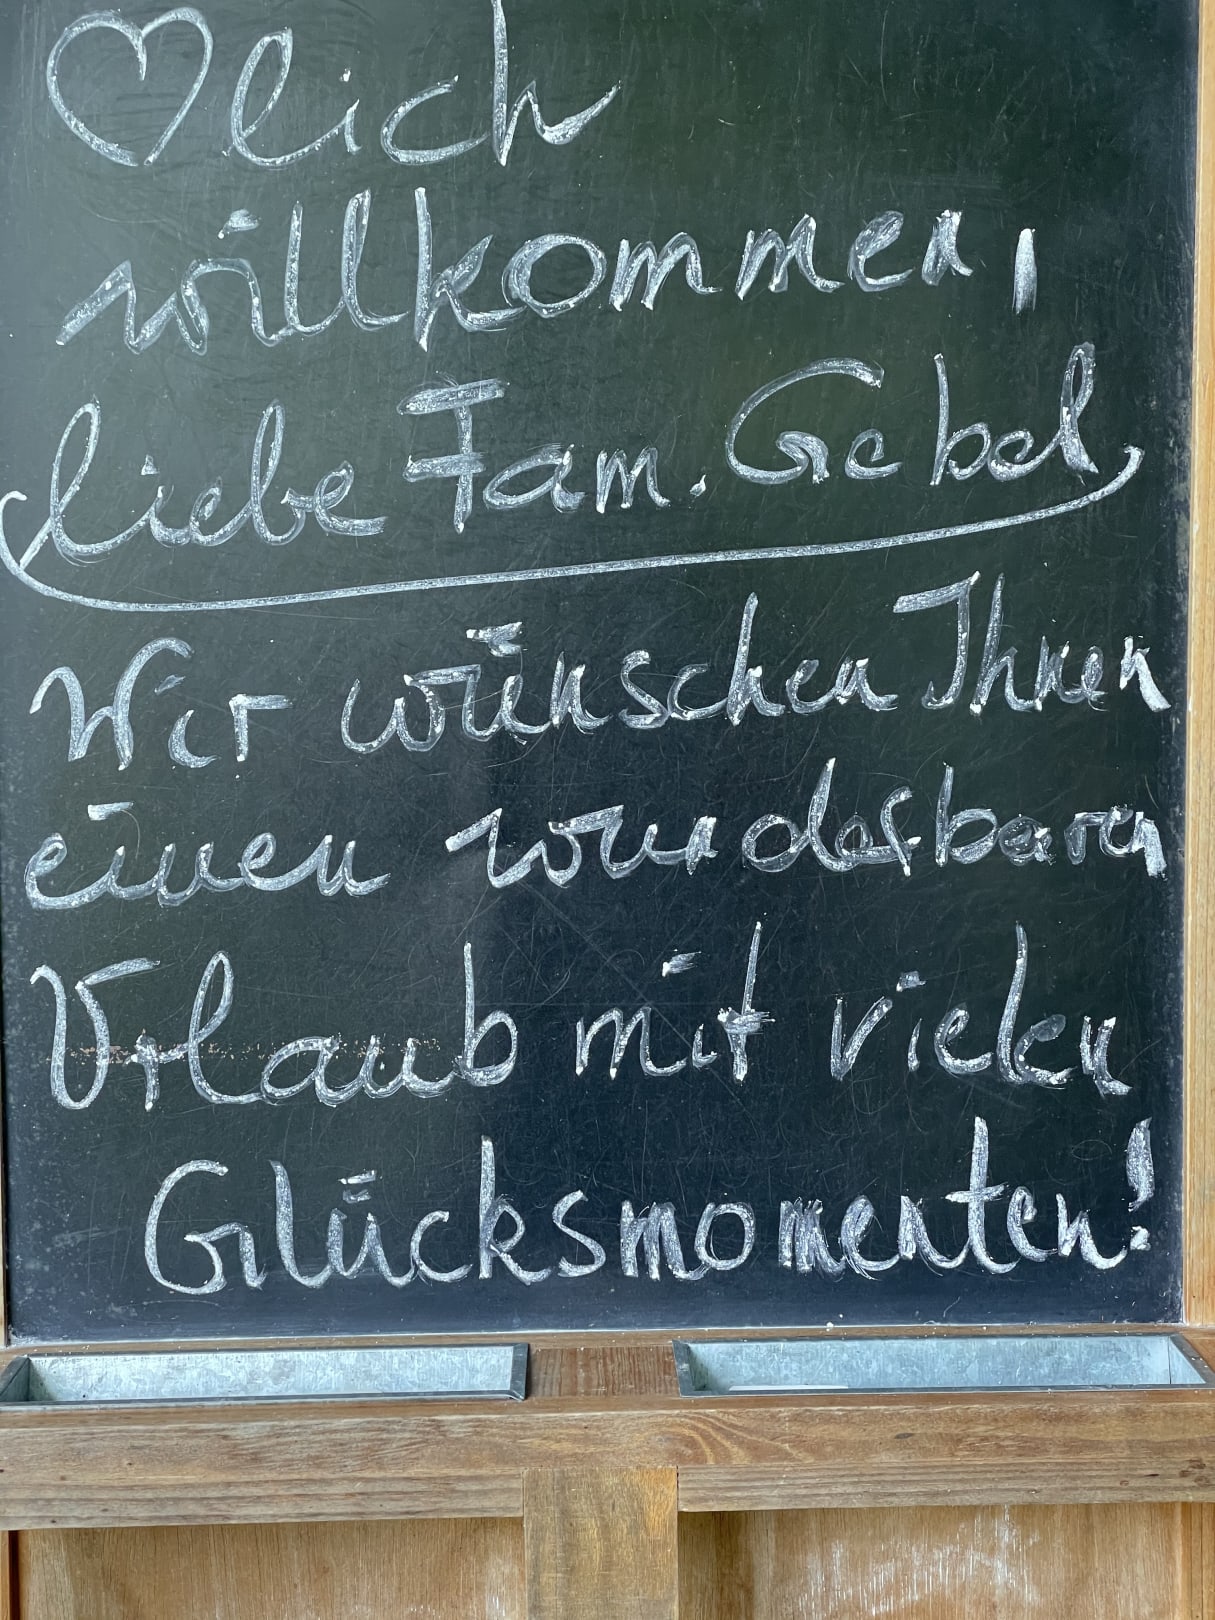 ♡lich
willkommen,
liebe Fam. Gebel,
Wir wünschen Ihnen
einen wunderbaren
Urlaub mit vielen
Glücksmomenten!